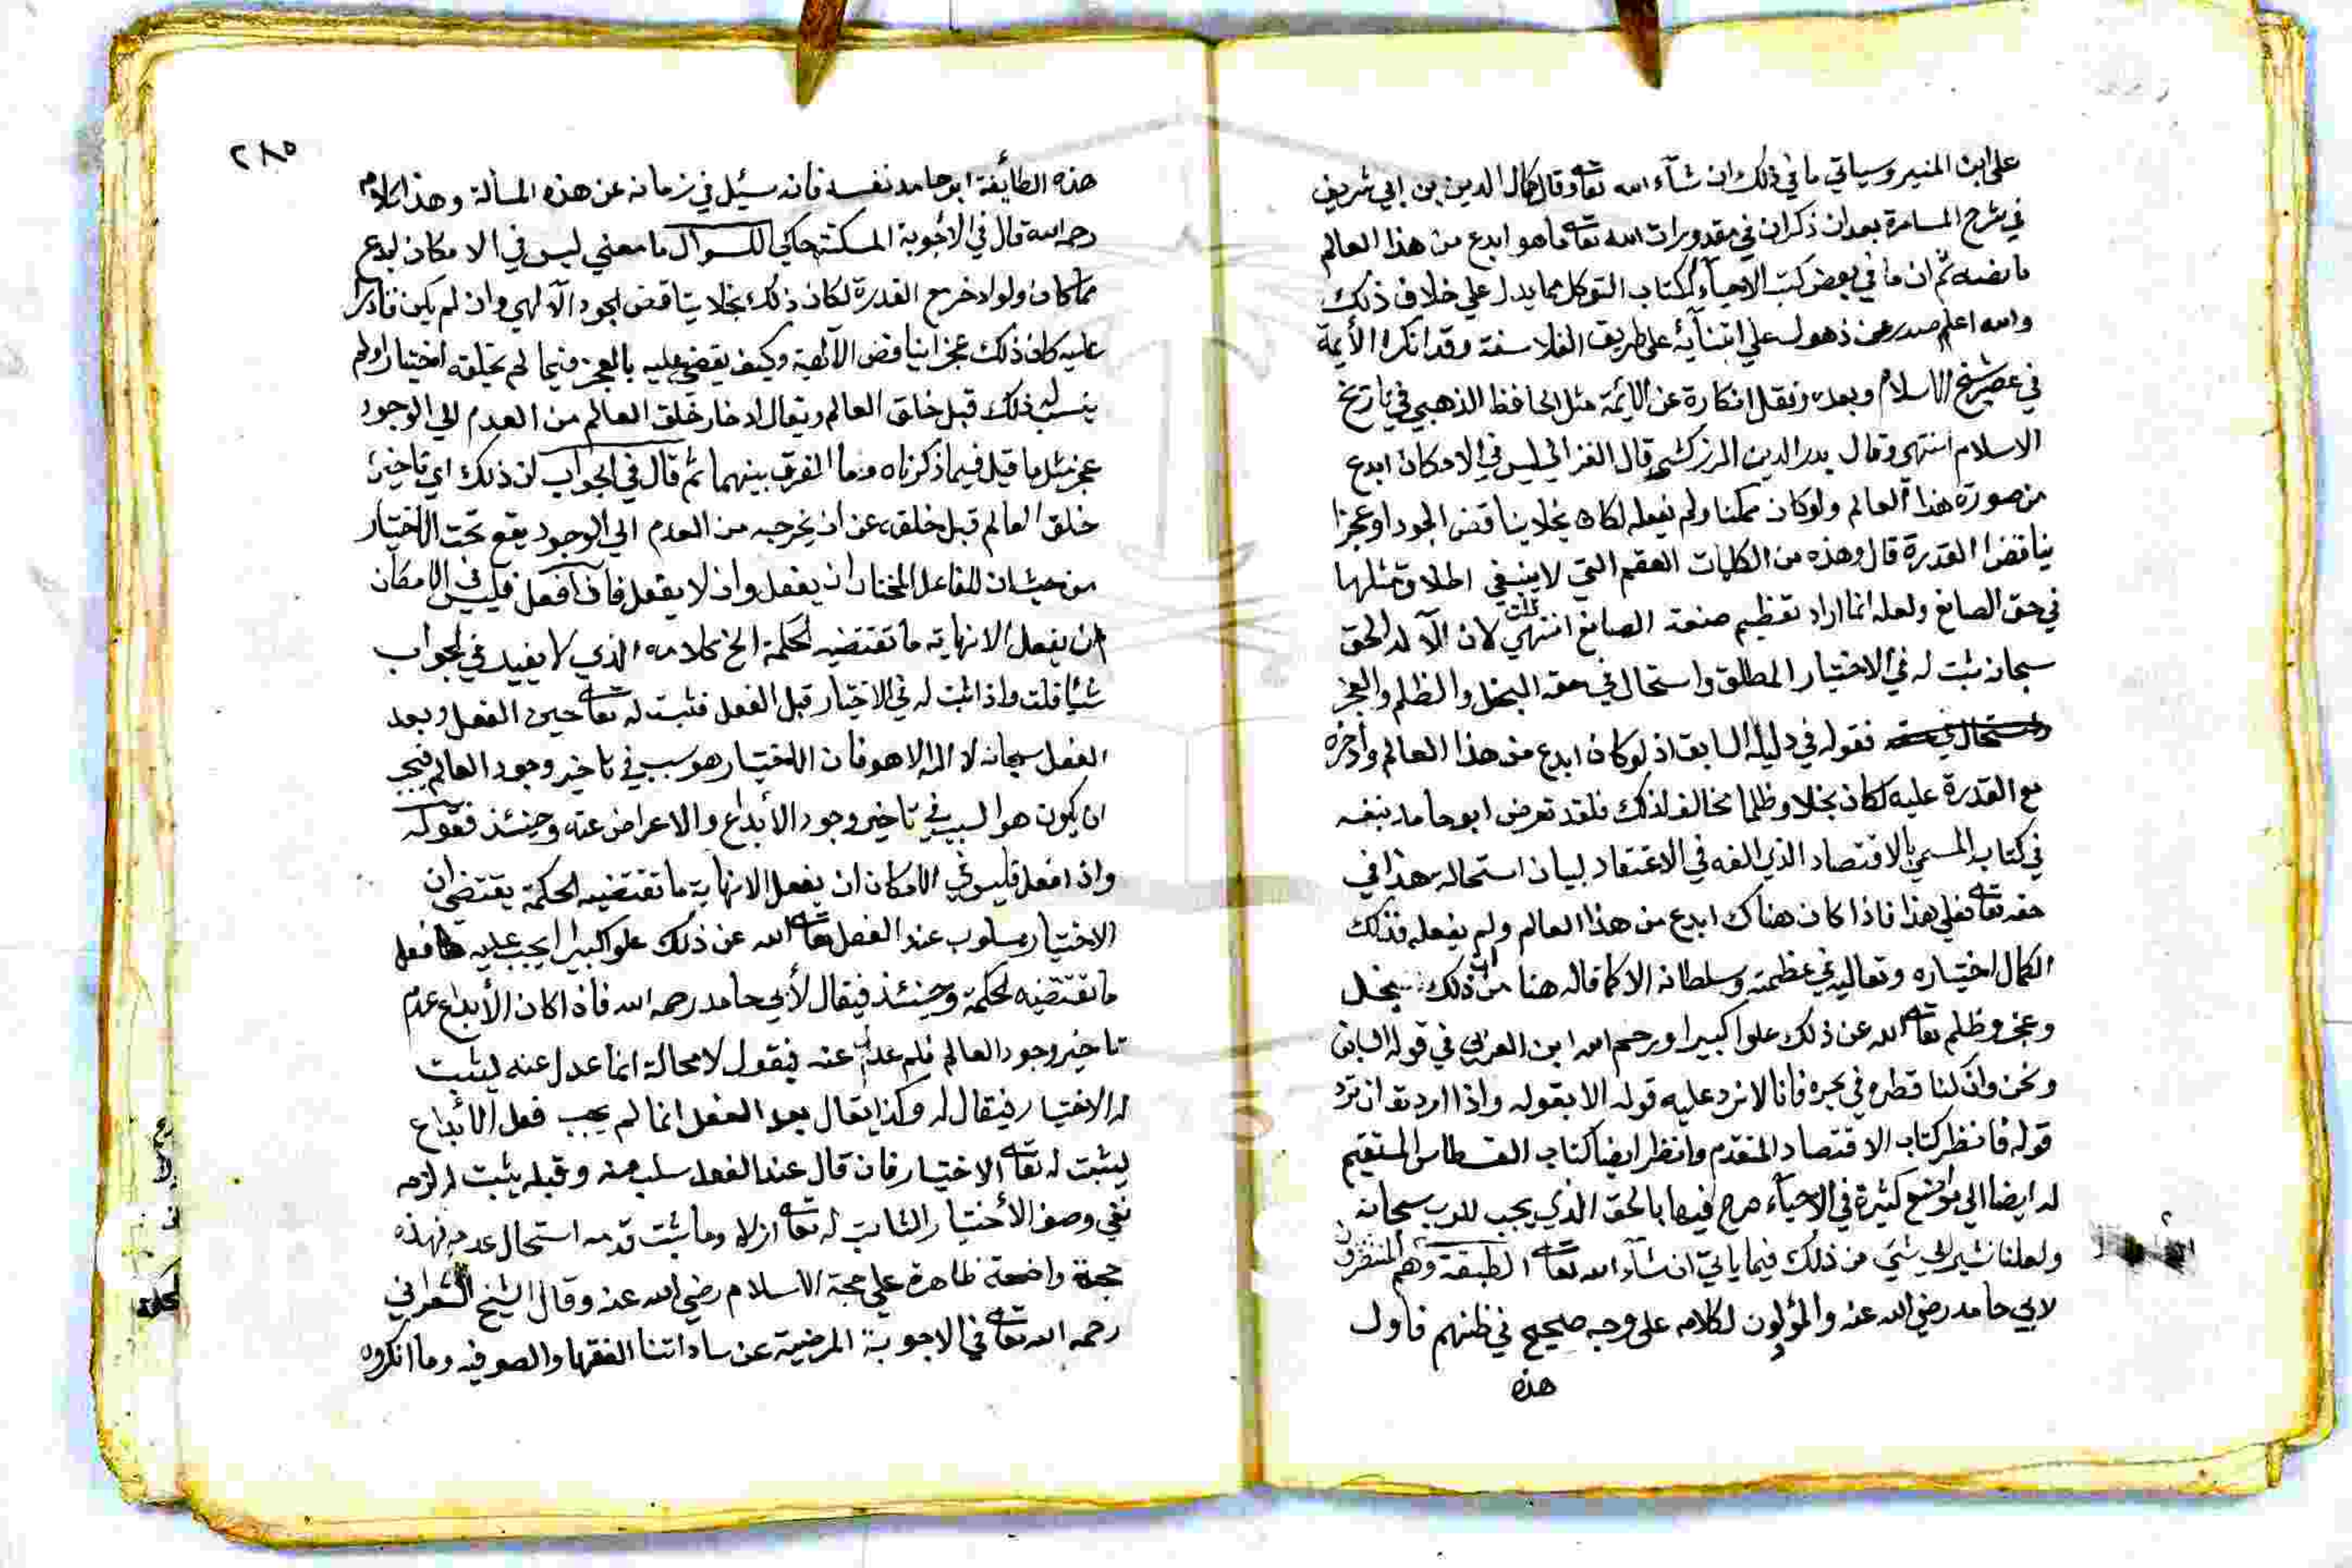 على ابن المنير وسياتي ما في ذلك ان شآء الله تعا وقال كمال الدين بن ابي شريف
في شرح المسامرة بعد ان ذكران في مقدورات الله تعا ما هو ابدع من هذا العالم
ما نصه ثم ان ما في بعض كتب الاحيآء ككتاب التوكل مما يدل علي خلاف ذلك
والله اعلم صدر عن ذهول علي ابتنآيه على طريق الفلاسفة وقد انكره الأيمة
في عصر شيخ الاسلام وبعده ونقل انكاره عن الائمة مثل الحافظ الذهبي في تاريخ
الاسلام انتهى وقال بدر الدين الزركشي قال الغزالي ليس في الامكان ابدع
من صورة هذا العالم ولو كان ممكنا ولم يفعله لكان بخلا يناقض الجود او عجزا
يناقض القدرة قال وهذه من الكلمات العقم التي لا ينبغي اطلاق مثلها
في حق الصانع ولعله انما اراد تعظيم صنعة الصانع انتهى قلت لان الآله الحق
سبحانه ثبت له في الاختيار المطلق واستحال في حقه البخل والظلم والعجز
فقوله في دليله السابق اذ لو كان ابدع من هذا العالم وأدخره
مع القدرة عليه لكان بخلا وظلما مخالف لذلك فلقد تعرض ابو حامد بنفسه
في كتابه المسمي بالاقتصاد الذي الفه في الاعتقاد لبيان استحالة هذا في
حقه تعا فعلي هذا فاذا كان هناك ابدع من هذا العالم ولم يفعله فذلك
لكمال اختياره وتعاليه في عظمته وسلطانه لا كما قاله هنا من ان ذلك بخل
وعجز وظلم تعا الله عن ذلك علوا كبيرا ورحم الله ابن العربي في قوله السابق
ونحن وان كنا قطره في بحره فانا لا نرد عليه قوله الا بقوله واذا اردت ان ترد
قوله فانظر كتاب الاقتصاد المتقدم وانظر ايضا كتاب القسطاس المستقيم
له ايضا الي مواضع كثيرة في الاحيآء صرح فيها بالحق الذي يجب للرب سبحانه
ولعلنا نشير الي شئ من ذلك فيما ياتي ان شآء الله تعا الطبقة وهم المنتصرون
لابي حامد رضي الله عنه والمؤلون لكلامه على وجه صحيح في ظنهم فاول
هذه
٢٨٥
هذه الطايفة ابو حامد نفسه فانه سئل في زمانه عن هذه المسألة وهذا كلامه
رحمه الله قال في الأجوبة المسكتة حاكي للسوال ما معني ليس في الامكان ابدع
مما كان ولو ادخر مع القدرة لكان ذلك بخلا يناقض الجود الآلهي وان لم يكن قادرا
عليه كان ذلك عجزا يناقض الآلهية وكيف يقضي عليه بالعجز فيما لم يخلقه اختيارا ولم
ينسب له ذلك قبل خلق العالم ويقال ادخار خلق العالم من العدم الي الوجود
عجز مثل ما قيل فيما ذكرناه وما الفرق بينهما ثم قال في الجواب ان ذلك اي تاخير
خلق العالم قبل خلقه عن ان يخرجه من العدم الي الوجود يقع تحت الاختيار
من حيث ان للفاعل المختار ان يفعل وان لا يفعل فاذا فعل فليس في الامكان
ان يفعل الا نهاية ما تقتضيه الحكمة الخ كلامه الذي لا يفيد في الجواب
شئا قلت واذا ثبت له في الاختيار قبل الفعل فثبت له تعا حين الفعل وبعد
الفعل سبحانه لا اله الا هو فان الاختيار هو سبب في تاخير وجود العالم فيجب
ان يكون هو السبب في تاخير وجود الأبداع والاعراض عنه وحينئذ فقوله
واذا فعل فليس في الامكان ان يفعل الا نهاية ما تقتضيه الحكمة يقتضي ان
الاختيار مسلوب عند الفعل تعا الله عن ذلك علوا كبيرا يجب عليه فعل
ما تقتضيه الحكمة وحينئذ فيقال لأبي حامد رحمه الله فاذا كان الأبداع عدم
تاخير وجود العالم فلم عدل عنه فيقول لا محالة انما عدل عنه ليثبت
له الاختيار فيقال له وكذا يقال بعد الفعل انما لم يجب فعل الأبداع
ليثبت له تعا الاختيار فان قال عند الفعل سلب منه وقبله يثبت له لزمه
نفي وصف الأختيار الثابت له تعا ازلا وما ثبت قدمه استحال عدمه فهذه
حجة واضحة ظاهرة علي حجة الاسلام رضي الله عنه وقال الشيخ الشعراني
رحمه الله تعا في الاجوبة المرضية عن ساداتنا الفقها والصوفيه وما انكروه